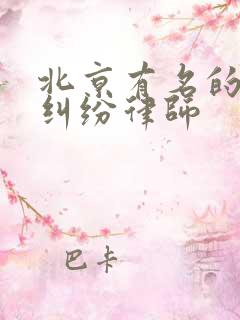 北京有名的
纠纷律師
巴卡